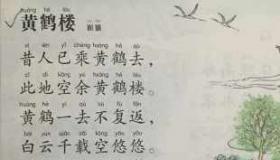 huáng hè lóu
黄鹤楼
xī rén yǐ chéng huáng hè qù
昔人已乘黄鹤去，
cǐ dì kōng yú huáng hè lóu
此地空余黄鹤楼。
huáng hè yí qù bú fù fǎn
黄鹤一去不复返，
bái yún qiān zǎi kōng yōu yōu
白云千载空悠悠。